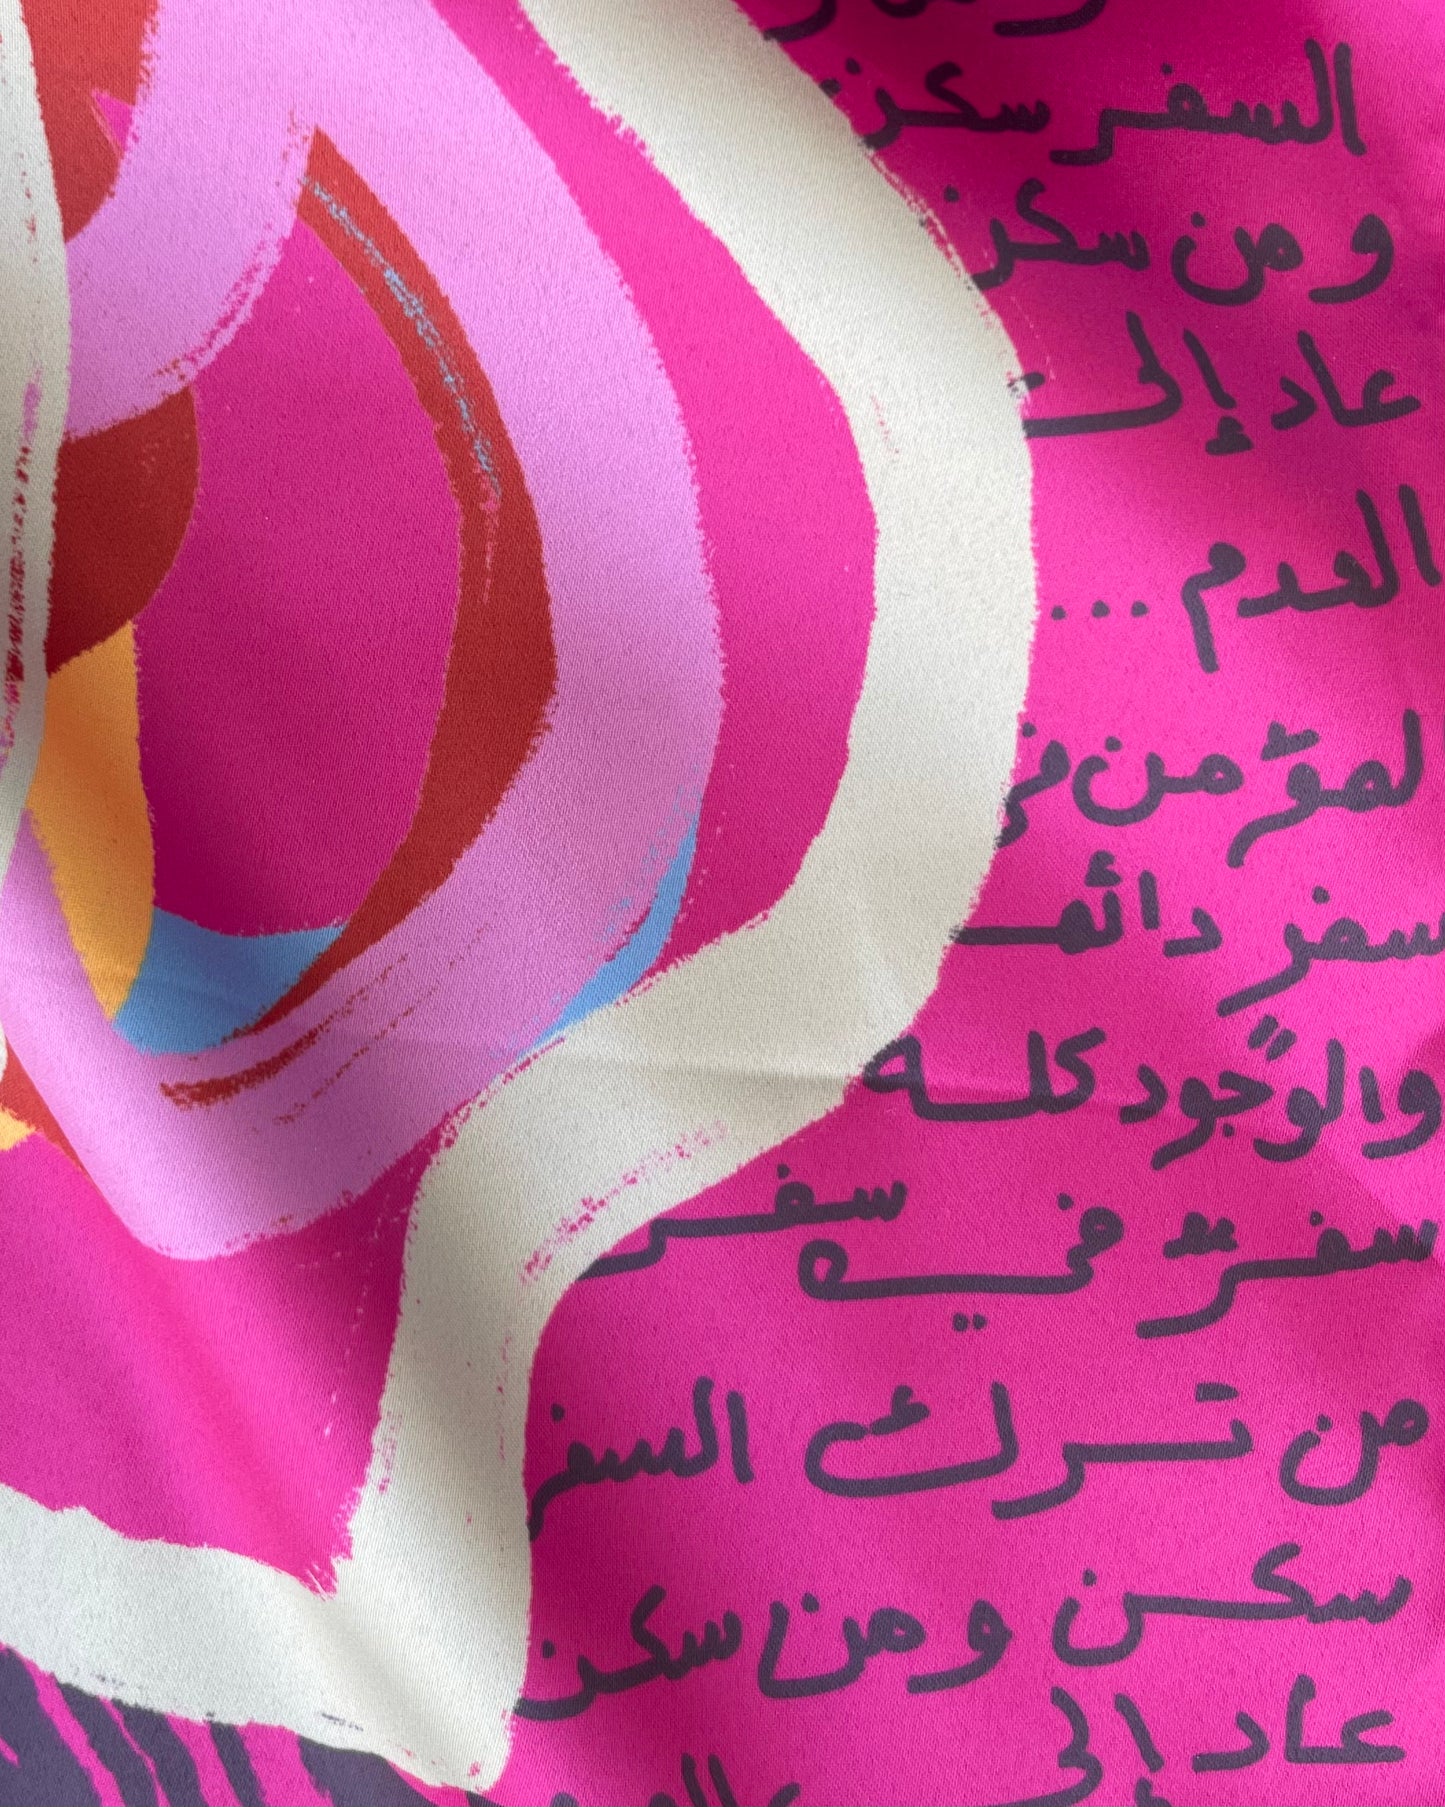 السفر سكن
و من سكن
عاد إلى
العدم ...
المؤمن في
سفرٍ دائم
والوجود كله
سفرٌ في سفر
من ترك السفر
سكن و من سكن
عاد إلى